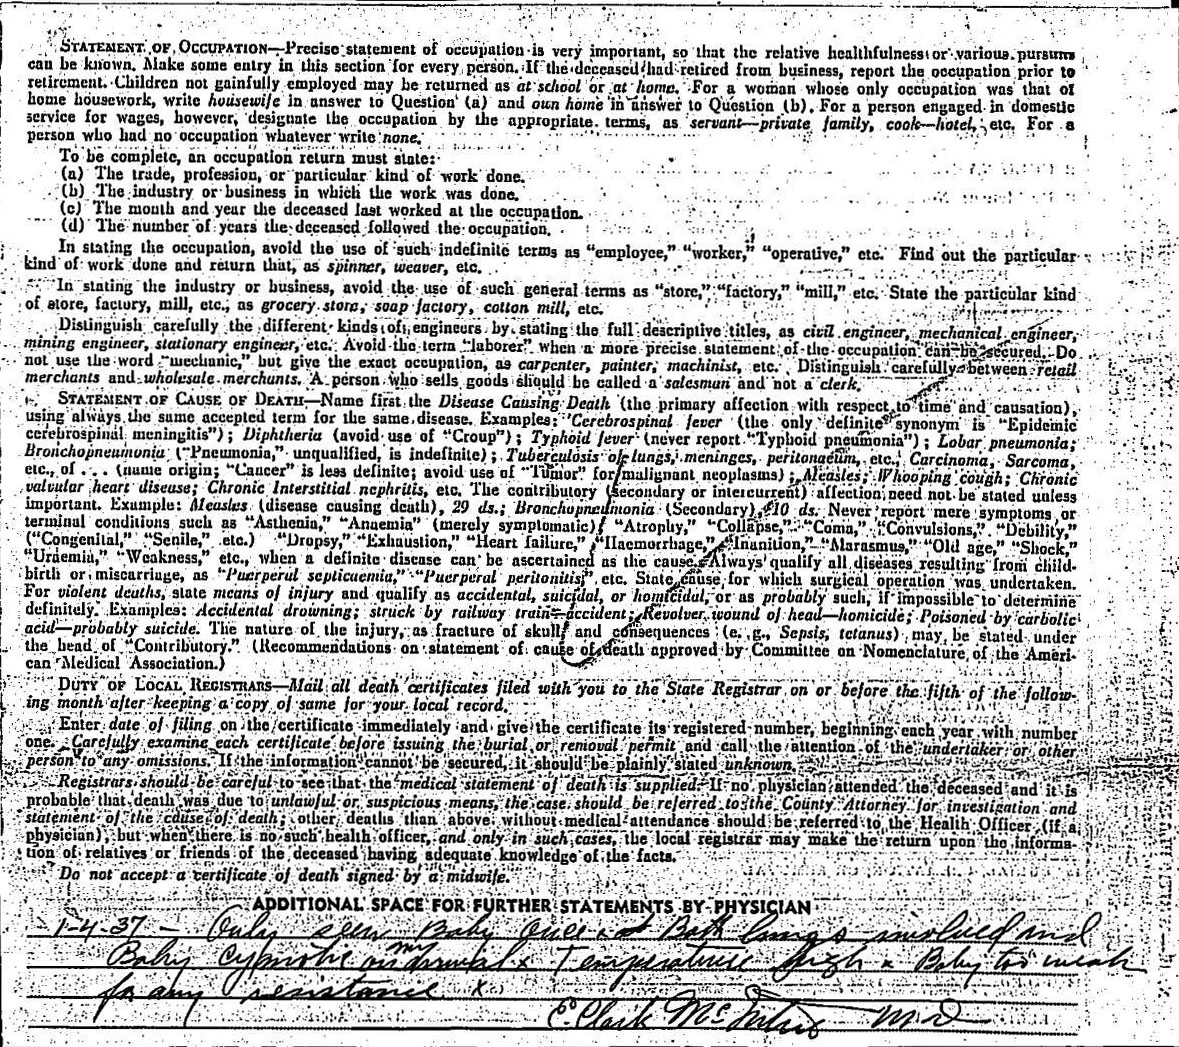 STATEMENT OF OCCUPATION—Precise statement of occupation is very important, so that the relative healthfulness or various pursuits
can be known. Make some entry in this section for every person. If the deceased had retired from business, report the occupation prior to
retirement. Children not gainfully employed may be returned as at school or at home. For a woman whose only occupation was that of
home housework, write housewife in answer to Question (a) and own home in answer to Question (b). For a person engaged in domestic
service for wages, however, designate the occupation by the appropriate terms, as servant—private family, cook—hotel, etc. For a
person who had no occupation whatever write none.
To be complete, an occupation return must state:
(a) The trade, profession, or particular kind of work done.
(b) The industry or business in which the work was done.
(c) The month and year the deceased last worked at the occupation.
(d) The number of years the deceased followed the occupation.
In stating the occupation, avoid the use of such indefinite terms as "employee," "worker," "operative," etc. Find out the particular
kind of work done and return that, as spinner, weaver, etc.
In stating the industry or business, avoid the use of such general terms as "store," "factory," "mill," etc. State the particular kind
of store, factory, mill, etc., as grocery store, soap factory, cotton mill, etc.
Distinguish carefully the different kinds of engineers by stating the full descriptive titles, as civil engineer, mechanical engineer,
mining engineer, stationary engineer, etc. Avoid the term "laborer" when a more precise statement of the occupation can be secured. Do
not use the word "mechanic," but give the exact occupation, as carpenter, painter, machinist, etc. Distinguish carefully between retail
merchants and wholesale merchants. A person who sells goods should be called a salesman and not a clerk.
STATEMENT OF CAUSE OF DEATH—Name first the Disease Causing Death (the primary affection with respect to time and causation),
using always the same accepted term for the same disease. Examples: Cerebrospinal fever (the only definite synonym is "Epidemic
cerebrospinal meningitis"); Diphtheria (avoid use of "Croup"); Typhoid fever (never report "Typhoid pneumonia"); Lobar pneumonia;
Bronchopneumonia ("Pneumonia," unqualified, is indefinite); Tuberculosis of lungs, meninges, peritonaeum, etc., Carcinoma, Sarcoma,
etc., of . . . (name origin; "Cancer" is less definite; avoid use of "Tumor" for malignant neoplasms); Measles; Whooping cough; Chronic
valvular heart disease; Chronic Interstitial nephritis, etc. The contributory (secondary or intercurrent) affection need not be stated unless
important. Example: Measles (disease causing death), 29 ds.; Bronchopneumonia (Secondary), 10 ds. Never report mere symptoms or
terminal conditions such as "Asthenia," "Anaemia" (merely symptomatic), "Atrophy," "Collapse," "Coma," "Convulsions," "Debility,"
("Congenital," "Senile," etc.) "Dropsy," "Exhaustion," "Heart failure," "Haemorrhage," "Inanition," "Marasmus," "Old age," "Shock,"
"Uraemia," "Weakness," etc., when a definite disease can be ascertained as the cause. Always qualify all diseases resulting from child-
birth or miscarriage, as "Puerperul septicaemia," "Puerperal peritonitis," etc. State cause for which surgical operation was undertaken.
For violent deaths, state means of injury and qualify as accidental, suicidal, or homicidal, or as probably such, if impossible to determine
definitely. Examples: Accidental drowning; struck by railway train—accident; Revolver wound of head—homicide; Poisoned by carbolic
acid—probably suicide. The nature of the injury, as fracture of skull, and consequences (e. g., Sepsis, tetanus) may be stated under
the head of "Contributory." (Recommendations on statement of cause of death approved by Committee on Nomenclature of the Ameri-
can Medical Association.)
DUTY OF LOCAL REGISTRARS—Mail all death certificates filed with you to the State Registrar on or before the fifth of the follow-
ing month after keeping a copy of same for your local record.
Enter date of filing on the certificate immediately and give the certificate its registered number, beginning each year with number
one. Carefully examine each certificate before issuing the burial or removal permit and call the attention of the undertaker or other
person to any omissions. If the information cannot be secured, it should be plainly stated unknown.
Registrars should be careful to see that the medical statement of death is supplied. If no physician attended the deceased and it is
probable that death was due to unlawful or suspicious means, the case should be referred to the County Attorney for investigation and
statement of the cause of death; other deaths than above without medical attendance should be referred to the Health Officer (if a
physician); but when there is no such health officer, and only in such cases, the local registrar may make the return upon the informa-
tion of relatives or friends of the deceased having adequate knowledge of the facts.
Do not accept a certificate of death signed by a midwife.
ADDITIONAL SPACE FOR FURTHER STATEMENTS BY PHYSICIAN
1-4-37 - Only seen Baby once Both lungs involved and
Baby on my arrival Temperature high Baby too weak
for any resistance x
E. Clark M.D.